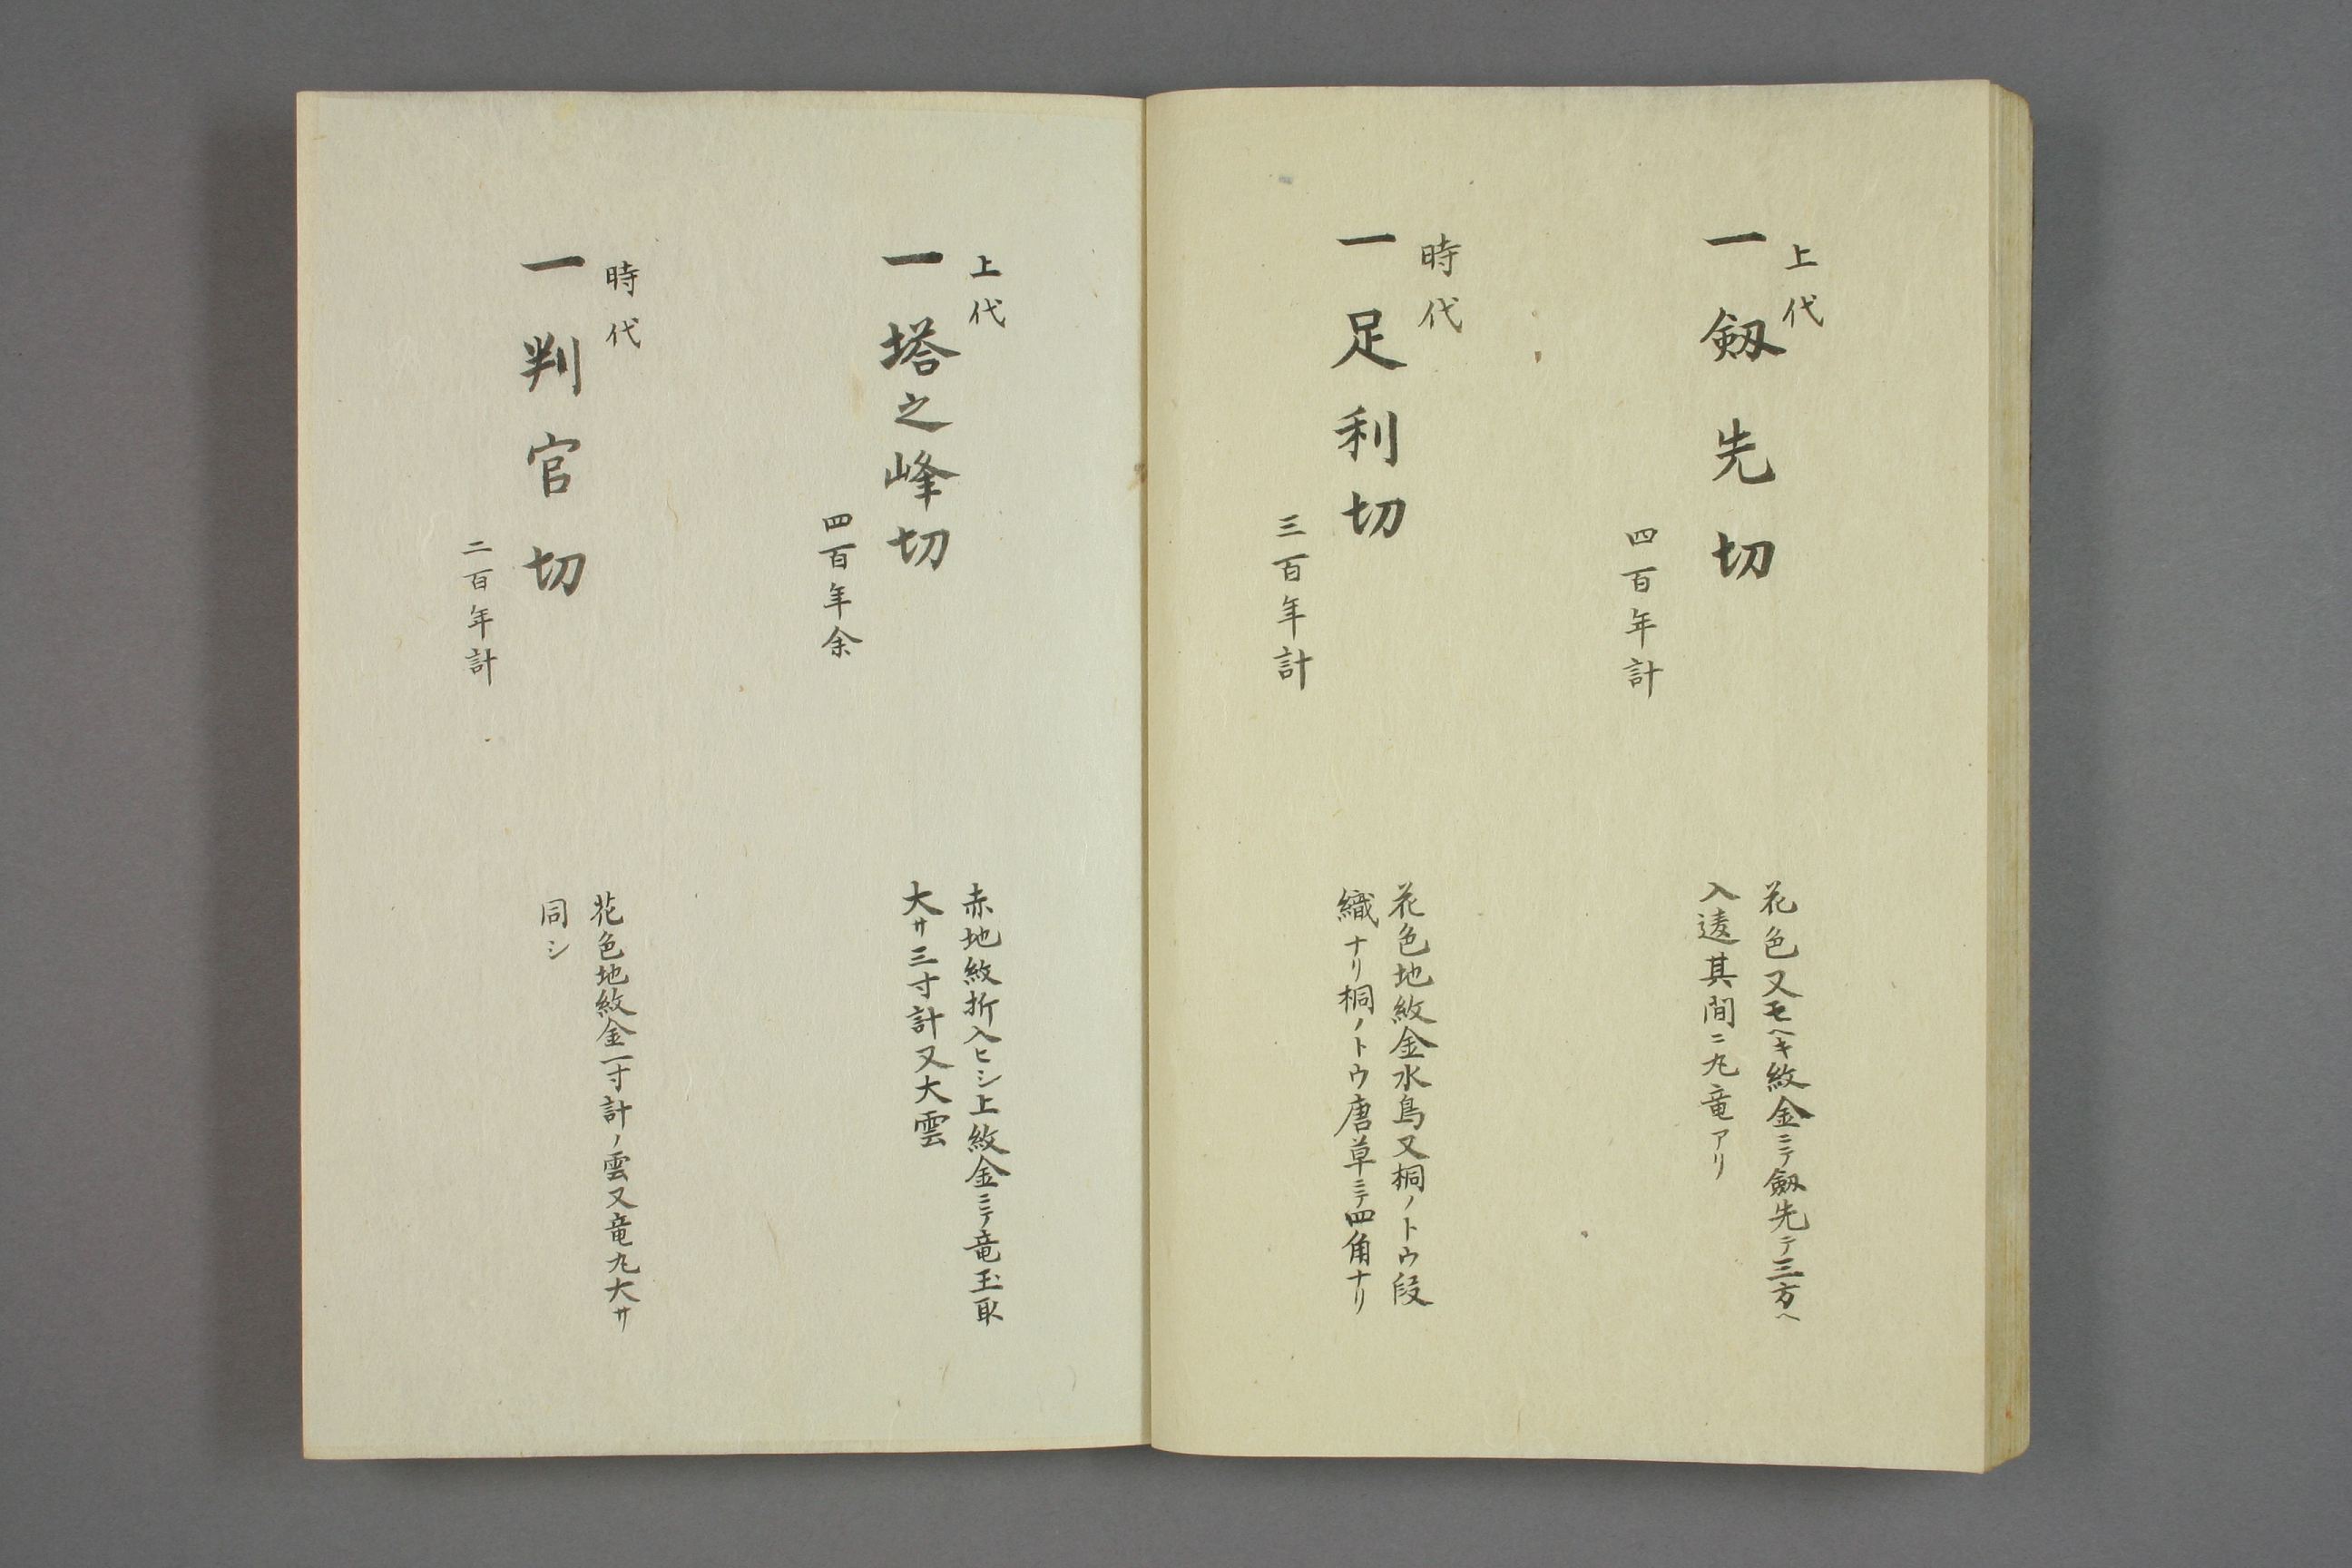 上代
一 劔先切
四百年計
花色又モヘキ紋金ニテ劔先テ三方ヘ
入違其間ニ丸竜アリ
時代
一 足利切
三百年計
花色地紋金水鳥又桐ノトウ段
織ナリ桐ノトウ唐草ニテ四角ナリ
上代
一 塔之峰切
四百年余
赤地紋折入ヒシ上紋金ニテ竜玉取
大サ三寸計又大雲
時代
一 判官切
二百年計
花色地紋金一寸計ノ雲又竜丸大サ
同シ